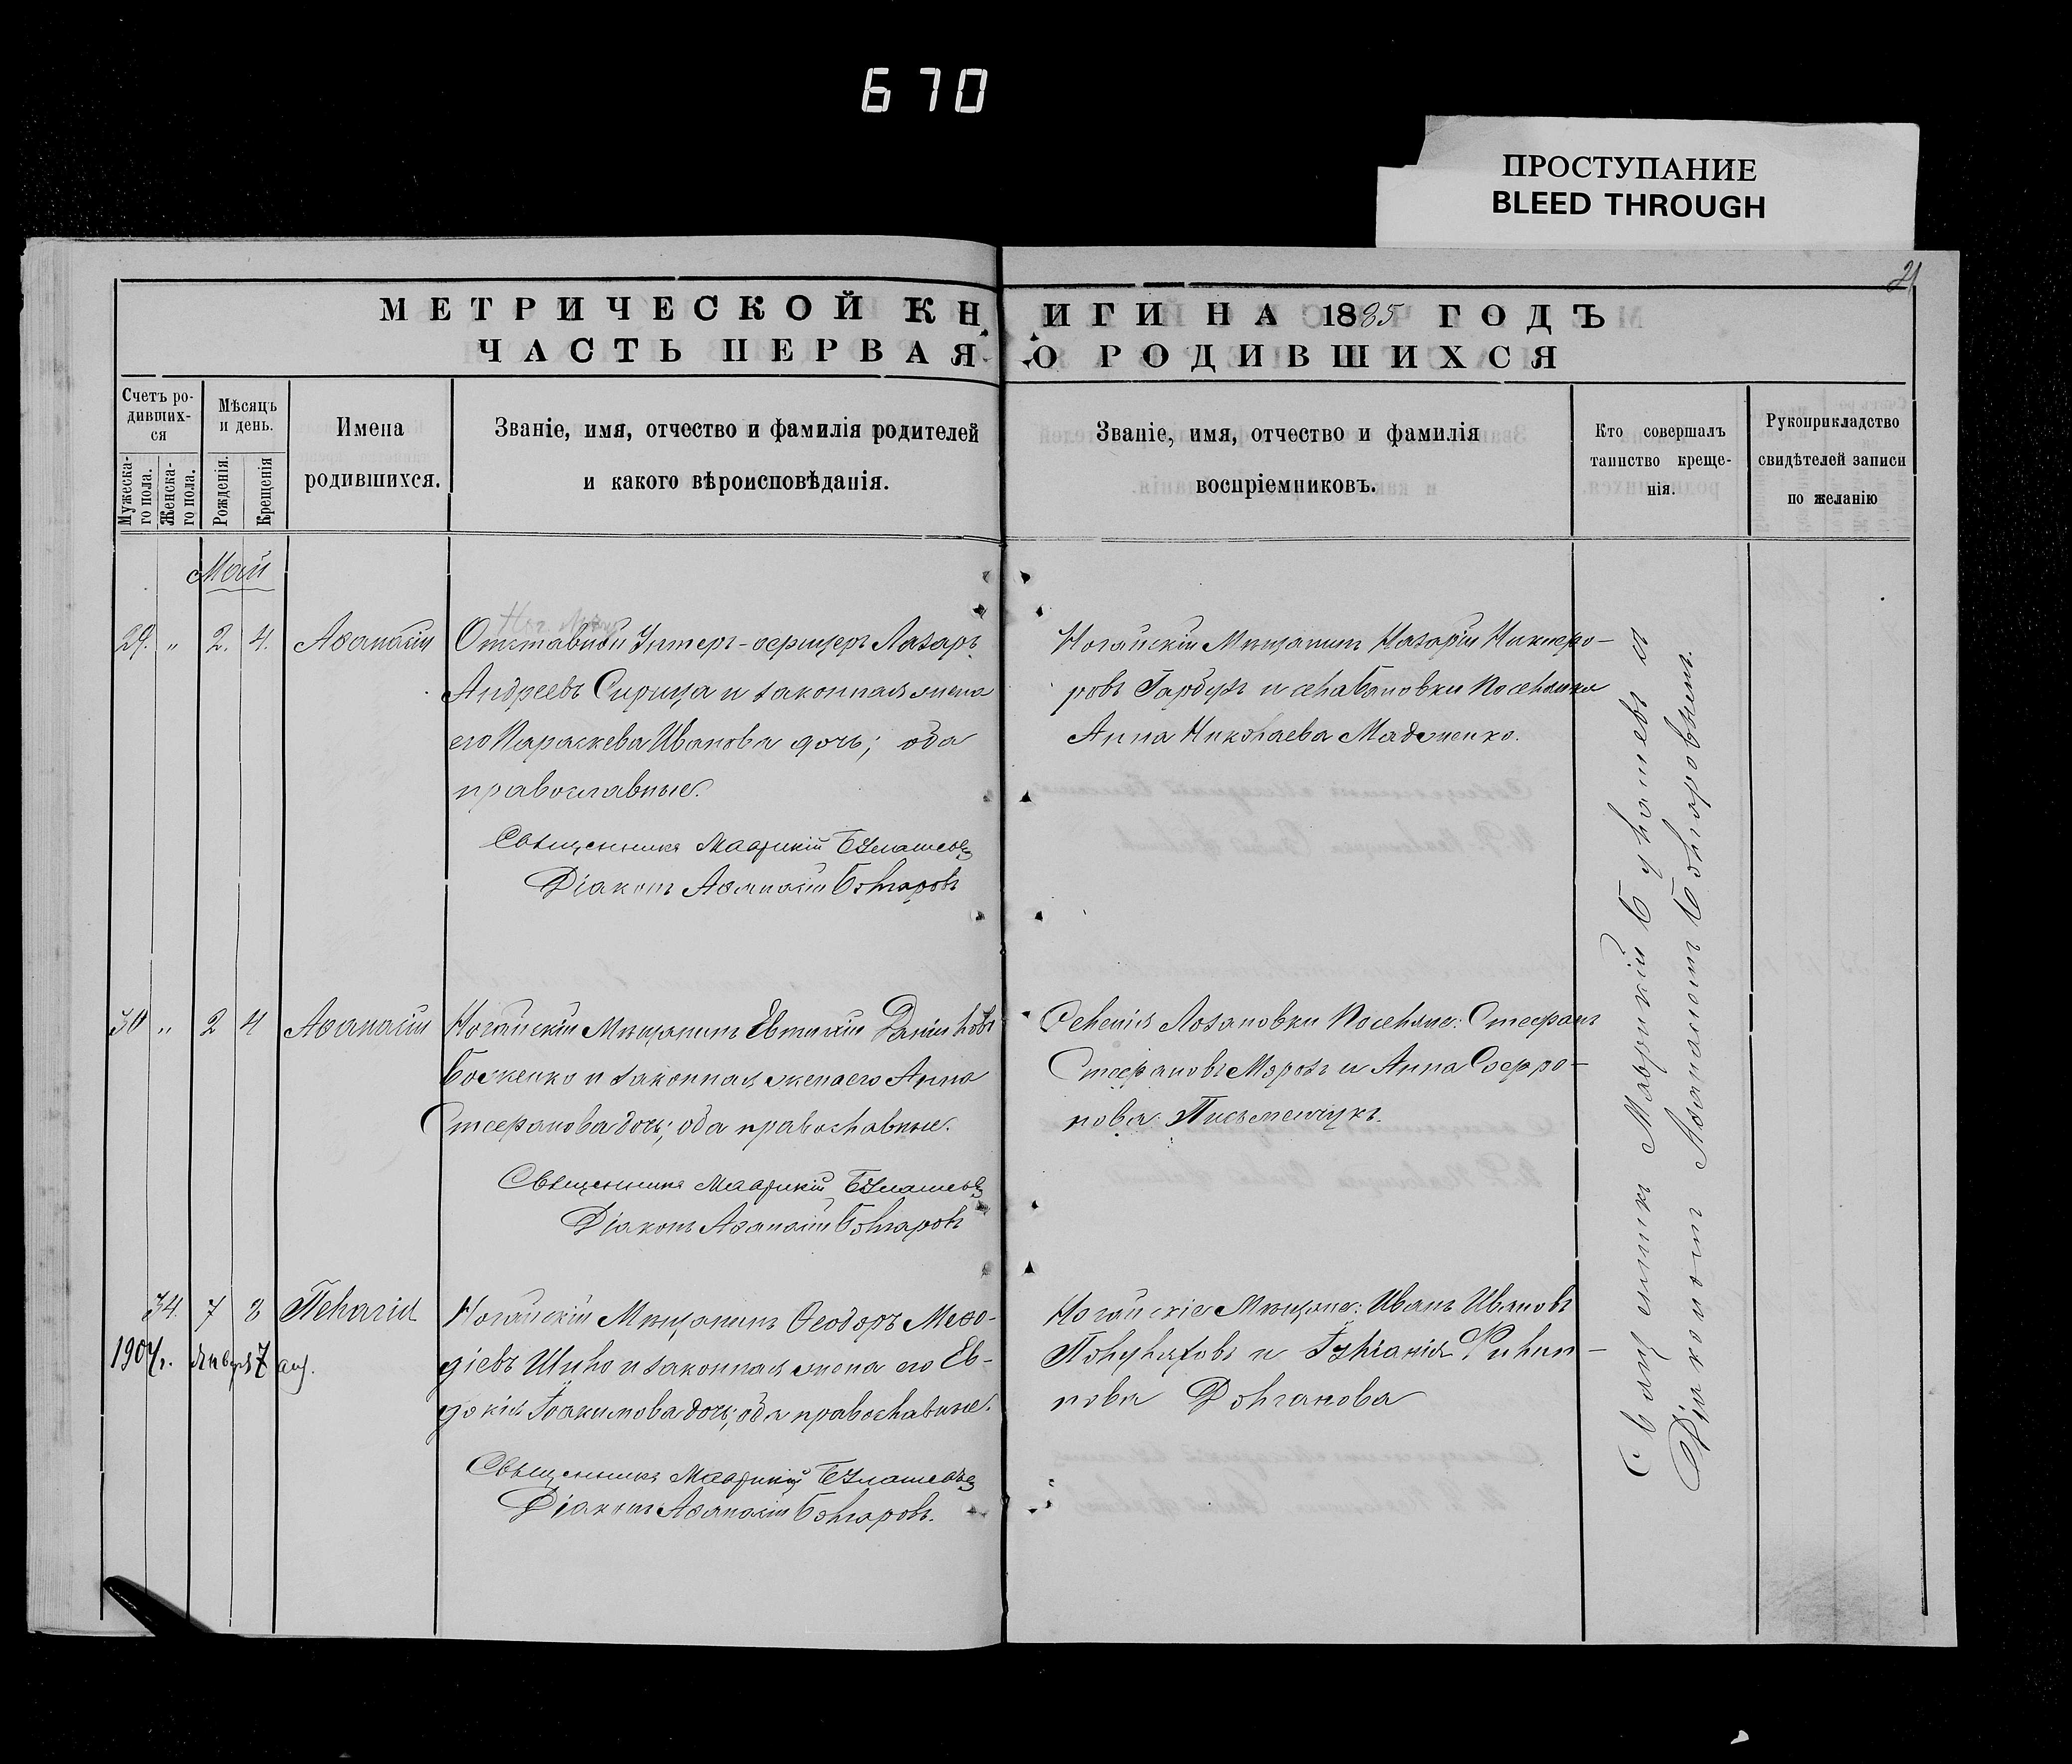 670
ПРОСТУПАНИЕ
BLEED THROUGH
21
МЕТРИЧЕСКОЙ КНИГИ НА 1885 ГОДЪ
ЧАСТЬ ПЕРВАЯ О РОДИВШИХСЯ
Счетъ ро-
дивших-
ся
Мужеска-
го пола.
Женска-
го пола.
Мѣсяцъ
и день.
Рожденія.
Крещенія
Имена
родившихся.
Званіе, имя, отчество и фамилія родителей
и какого вѣроисповѣданія.
Званіе, имя, отчество и фамилія
воспріемниковъ.
Кто совершалъ
таинство креще-
нія.
Рукоприкладство
свидѣтелей записи
по желанію
Май
29. " 2. 4. Аѳанасій
Отставной Унтеръ-офицеръ Лазарь
Андреевъ Сирица и законная жена
его Параскева Иванова дочь; оба
православные.
Священникъ Маврикій
Діаконъ Аѳанасій Болгаровъ
Ногайскій Мѣщанинъ Назарій Никифо-
ровъ Гарбузъ и села Бановки поселянка
Анна Николаева
30 " 2 4 Аѳанасій
Ногайскій Мѣщанинъ Евтихій Даніиловъ
Боженко и законная жена его Анна
Стефанова дочь; оба православные.
Священникъ Маврикій
Діаконъ Аѳанасій Болгаровъ
Селенія Лозановки Поселяне: Стефанъ
Стефановъ Морозъ и Анна Софро-
нова Письменчукъ.
34. 7 8 Пелагія
1904г. Января 7 дня.
Ногайскій Мѣщанинъ Ѳеодоръ Меѳо-
діевъ Шило и законная жена его Ев-
докія Іоакимова дочь; оба православные.
Священникъ Маврикій
Діаконъ Аѳанасій Болгаровъ.
Ногайскіе Мѣщане: Иванъ Ивановъ
Полуляховъ и Іуліанія Филип-
пова Долганова
Священникъ Маврикій
Діакономъ Аѳанасіемъ Болгаровымъ.